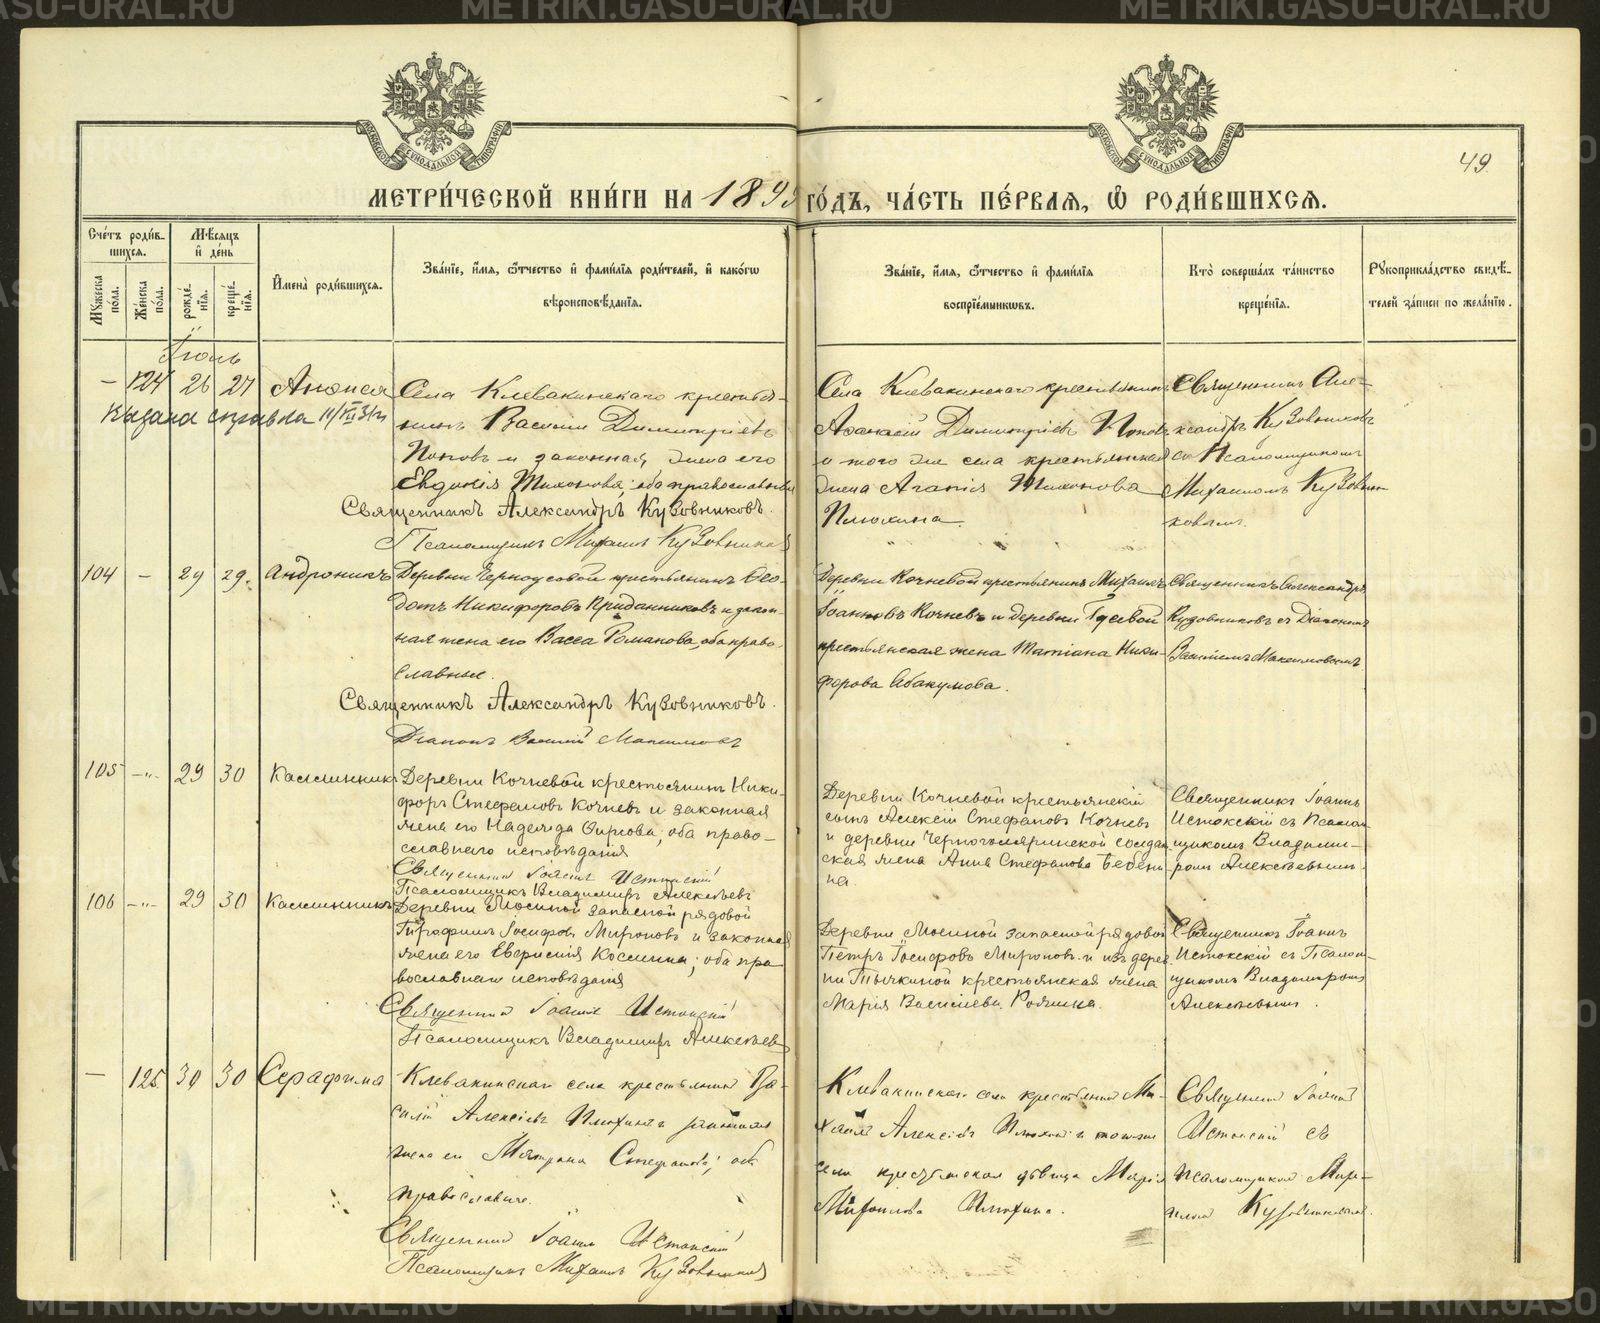 METRIKI.GASU-URAL.RU
49
МЕТРИ́ЧЕСКОЙ КНИ́ГИ НА 1899 ГО́ДЪ, ЧА́СТЬ ПЕ́РВАЯ, Ѡ РОДИ́ВШИХСЯ.
Сче́тъ роди́вшихся.
Му́жеска по́ла.
Же́нска по́ла.
Мѣ́сяцъ и де́нь
рожде́нїя.
креще́нїя.
Имена̀ роди́вшихся.
Зва́нїе, и́мя, ѻ́тчество и фами́лїя роди́телей, и како́гѡ вѣроисповѣ́данїя.
Зва́нїе, и́мя, ѻ́тчество и фами́лїя воспрїе́мникѡвъ.
Кто̀ соверша́лъ та́инство креще́нїя.
Рꙋкоприкла́дство свидѣ́телей за́писи по жела́нїю.
Іюль
– 124 26 27 Анфиса
Села Клевакинскаго крестья-
нинъ Василій Димитріевъ
Поповъ и законная жена его
Евдокія Тихонова; оба православные
Священникъ Александръ Кузовниковъ.
Псаломщикъ Михаилъ Кузовниковъ
Села Клевакинскаго крестьянинъ
Димитріевъ Поповъ
и того же села крестьянская
жена Агапія Тихонова
Плюхина.
Священникъ Але-
ксандръ Кузовниковъ
съ Псаломщикомъ
Михаиломъ Кузовни-
ковымъ.
104 – 29 29. Андроникъ
Деревни Черноусовой крестьянинъ Ѳео-
дотъ Никифоровъ Приданниковъ и закон-
ная жена его Васса Романова, оба право-
славные.
Священникъ Александръ Кузовниковъ.
Діаконъ Василій Максимовъ
Деревни Кочневой крестьянинъ Михаилъ
Іоанновъ Кочневъ и деревни Гусевой
крестьянская жена Татіана Ники-
форова Абакумова.
Священникъ Александръ
Кузовниковъ съ Діакономъ
Василіемъ Максимовымъ
105 –"– 29 30 Каллиникъ
Деревни Кочневой крестьянинъ Ники-
форъ Стефановъ Кочневъ и законная
жена его Надежда Фирсова, оба право-
славнаго исповѣданія
Священникъ Іоаннъ Истокскій
Псаломщикъ Владиміръ Алексѣевъ
Деревни Кочневой крестьянскій
сынъ Алексій Стефановъ Кочневъ
и деревни солдат-
ская жена Анна Стефанова Бебени-
на.
Священникъ Іоаннъ
Истокскій съ Псалом-
щикомъ Владимі-
ромъ Алексѣевымъ.
106 –"– 29 30 Каллиникъ
Деревни Мосиной запасной рядовой
Трофимъ Іосифовъ Мироновъ и законная
жена его Евгенія Космина; оба пра-
вославнаго исповѣданія
Священникъ Іоаннъ Истокскій
Псаломщикъ Владиміръ Алексѣевъ
Деревни Мосиной запасной рядовой
Петръ Іосифовъ Мироновъ и изъ дерев-
ни Тычкиной крестьянская жена
Марія Василіева
Священникъ Іоаннъ
Истокскій съ Псалом-
щикомъ Владиміромъ
Алексѣевымъ.
– 125 30 30 Серафима
Клевакинскаго села крестьянинъ Ва-
силій Алексіевъ Плюхинъ и законная
жена его Матрона Стефанова; оба
православные.
Священникъ Іоаннъ Истокскій
Псаломщикъ Михаилъ Кузовниковъ
Клевакинскаго села крестьянинъ Ми-
хаилъ Алексіевъ Плюхинъ и того же
села крестьянская дѣвица Марія
Михаилова Плюхина.
Священникъ Іоаннъ
Истокскій съ
псаломщикомъ Миха-
иломъ Кузовниковымъ.